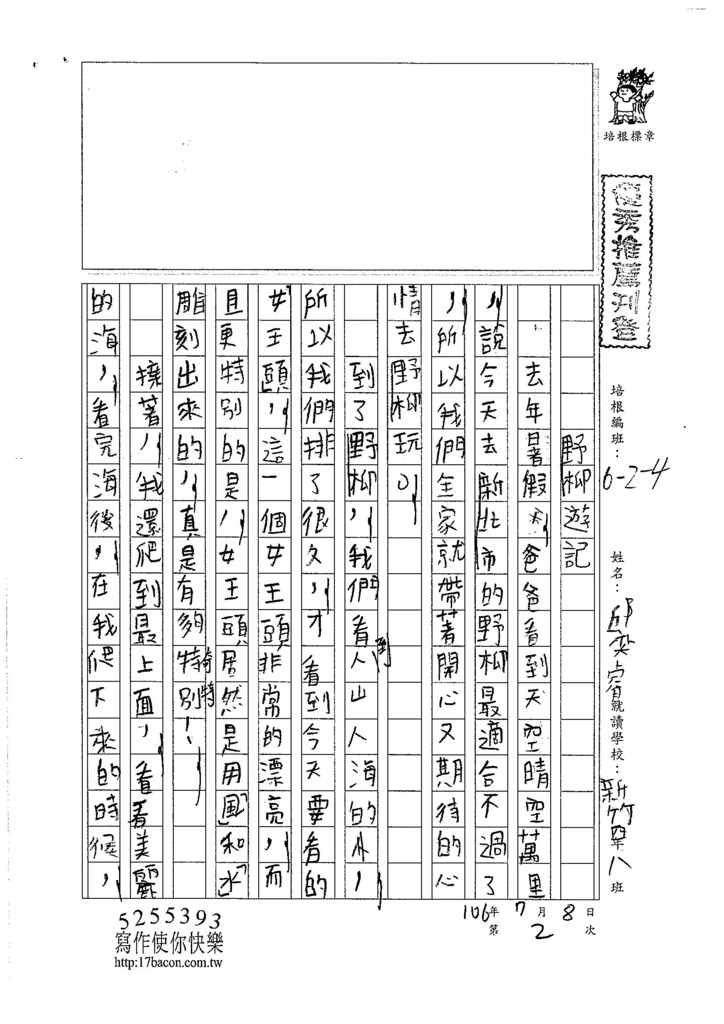 培根標章
優秀推薦刊登
培根編班：6-2-4
姓名：邱奕睿
就讀學校：新竹 八班
106年7月8日
第2次
野柳遊記
去年暑假，爸爸看到天空晴空萬里
，說今天去新北市的野柳最適合不過了
，所以我們全家就帶著開心又期待的心
情去野柳玩。
到了野柳，我們看到人山人海的人，
所以我們排了很久，才看到今天要看的
「女王頭」，這一個女王頭非常的漂亮，而
且更特別的是，女王頭居然是用「風」和「水」
雕刻出來的，真是有夠奇特！
接著，我還爬到最上面，看看美麗
的海，看完海後，在我爬下來的時候，
5255393
寫作使你快樂
http:17bacon.com.tw